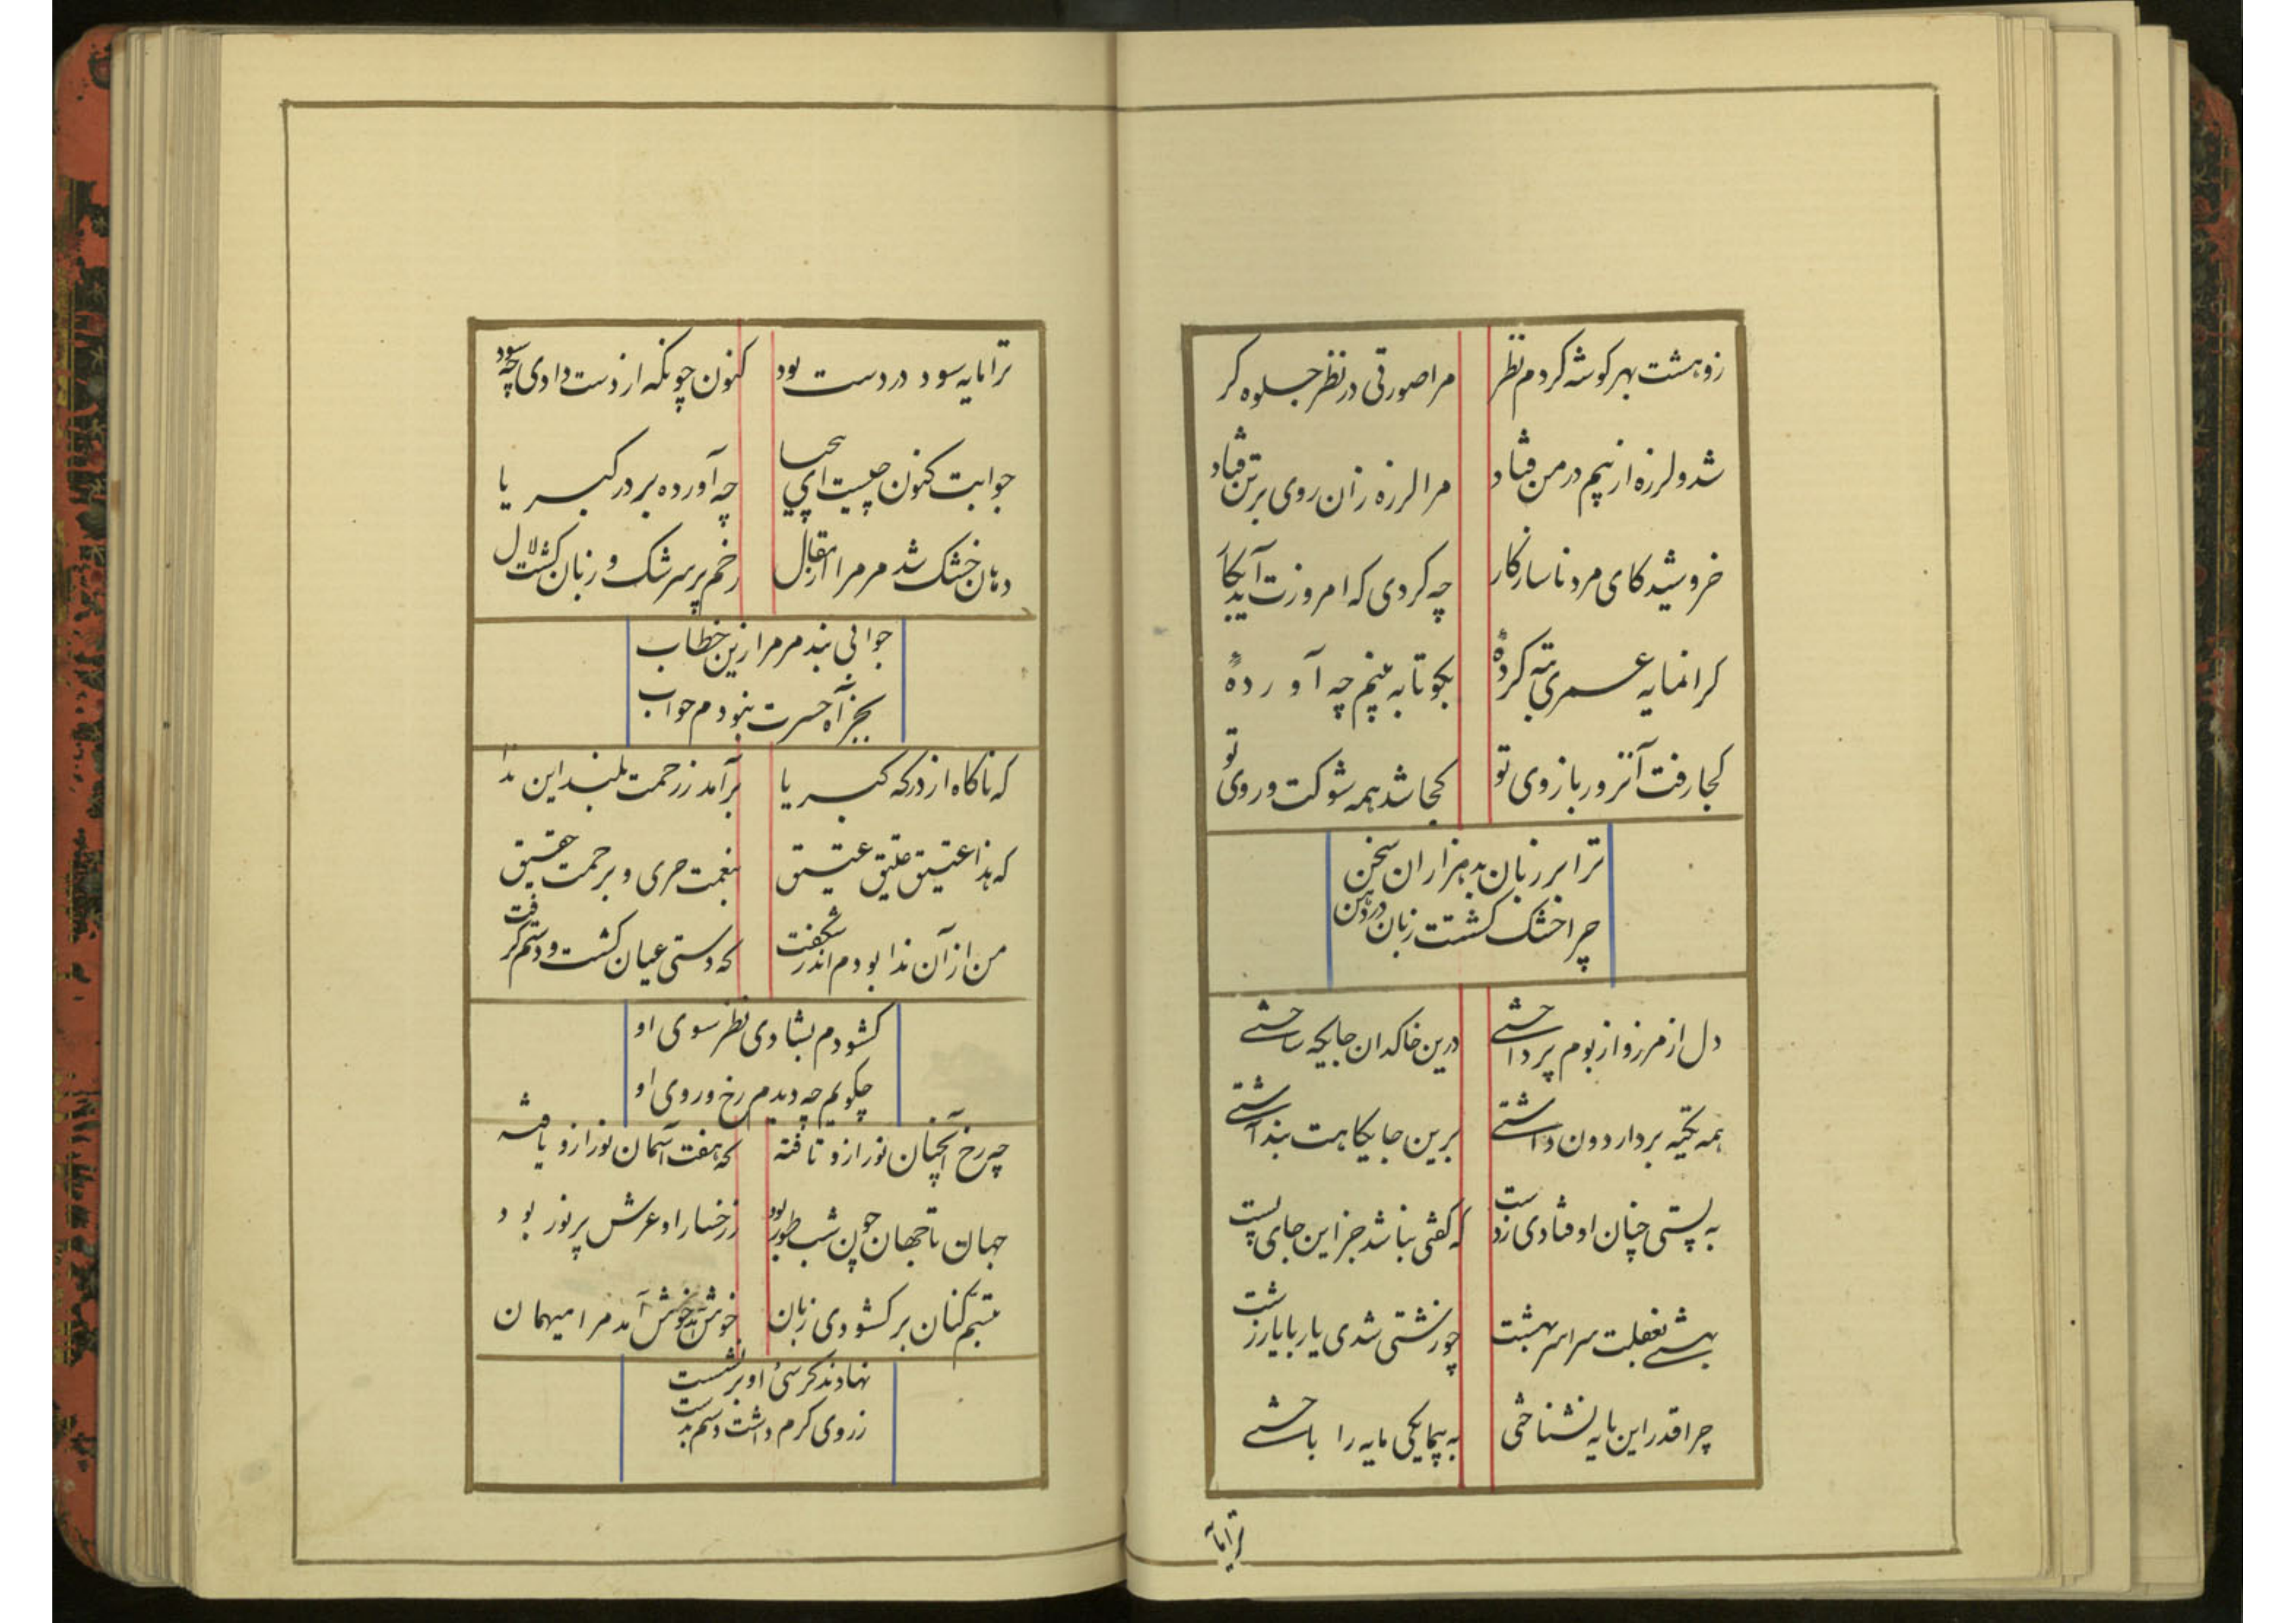 ز وهشت بهر کوشه کردم نظر مرا صورتی در نظر جلوه کر
شد و لرزه از بیم در من فتاد مرا لرزه زان روی بر تن فتاد
خروشید کای مرد ناسازکار چه کردی که امروزت آید بکار
کرانمایه عمری تبه کردهٔ بکو تا به بینم چه آوردهٔ
کجا رفت آنزور بازوی تو کجا شد همه شوکت و روی تو
ترا بر زبان بد هزاران سخن
چرا خشک کشتت زبان در دهن
دل از مرز و از بوم پرداختی درین خاکدان جایکه ساختی
همه تکیه بر دار دون داشتی برین جایکاهت بنداشتی
به پستی چنان اوفتادی ز دست که کفتی نباشد جز این جای پست
بهشتی بغفلت سراسر بهشت چو زشتی شدی یار با یار زشت
چرا قدر این مایه نشناختی به بیمایکی مایه را باختی
ترا ما
ترا مایه سود در دست بود کنون چونکه از دست دادی چه سود
جوابت کنون چیست ای بیحیا چه آورده بر در کبریا
دهان خشک شد مر مرا ز انفعال رخم پر سرشک و زبان کشت لال
جوابی نبد مر مرا زین خطاب
بجز آه حسرت نبودم جواب
که ناکاه از درکه کبریا برآمد ز رحمت بلند این ندا
که هذا عتیق عتیق عتیق بنعمت حری و برحمت حقیق
من از آن ندا بودم اندر شکفت که دستی عیان کشت و دستم کرفت
کشودم بشادی نظر سوی او
چکویم چه دیدم رخ و روی او
چه رخ آنچنان نور ازو تافته که هفت آسمان نور ازو یافته
جهان تا جهان چون شب طور بود ز رخسار او عرش پر نور بود
تبسم کنان بر کشودی زبان خوش آمد خوش آمد مرا میهمان
نهادند کرسیٔ او بر نشست
ز روی کرم داشت دستم بدست